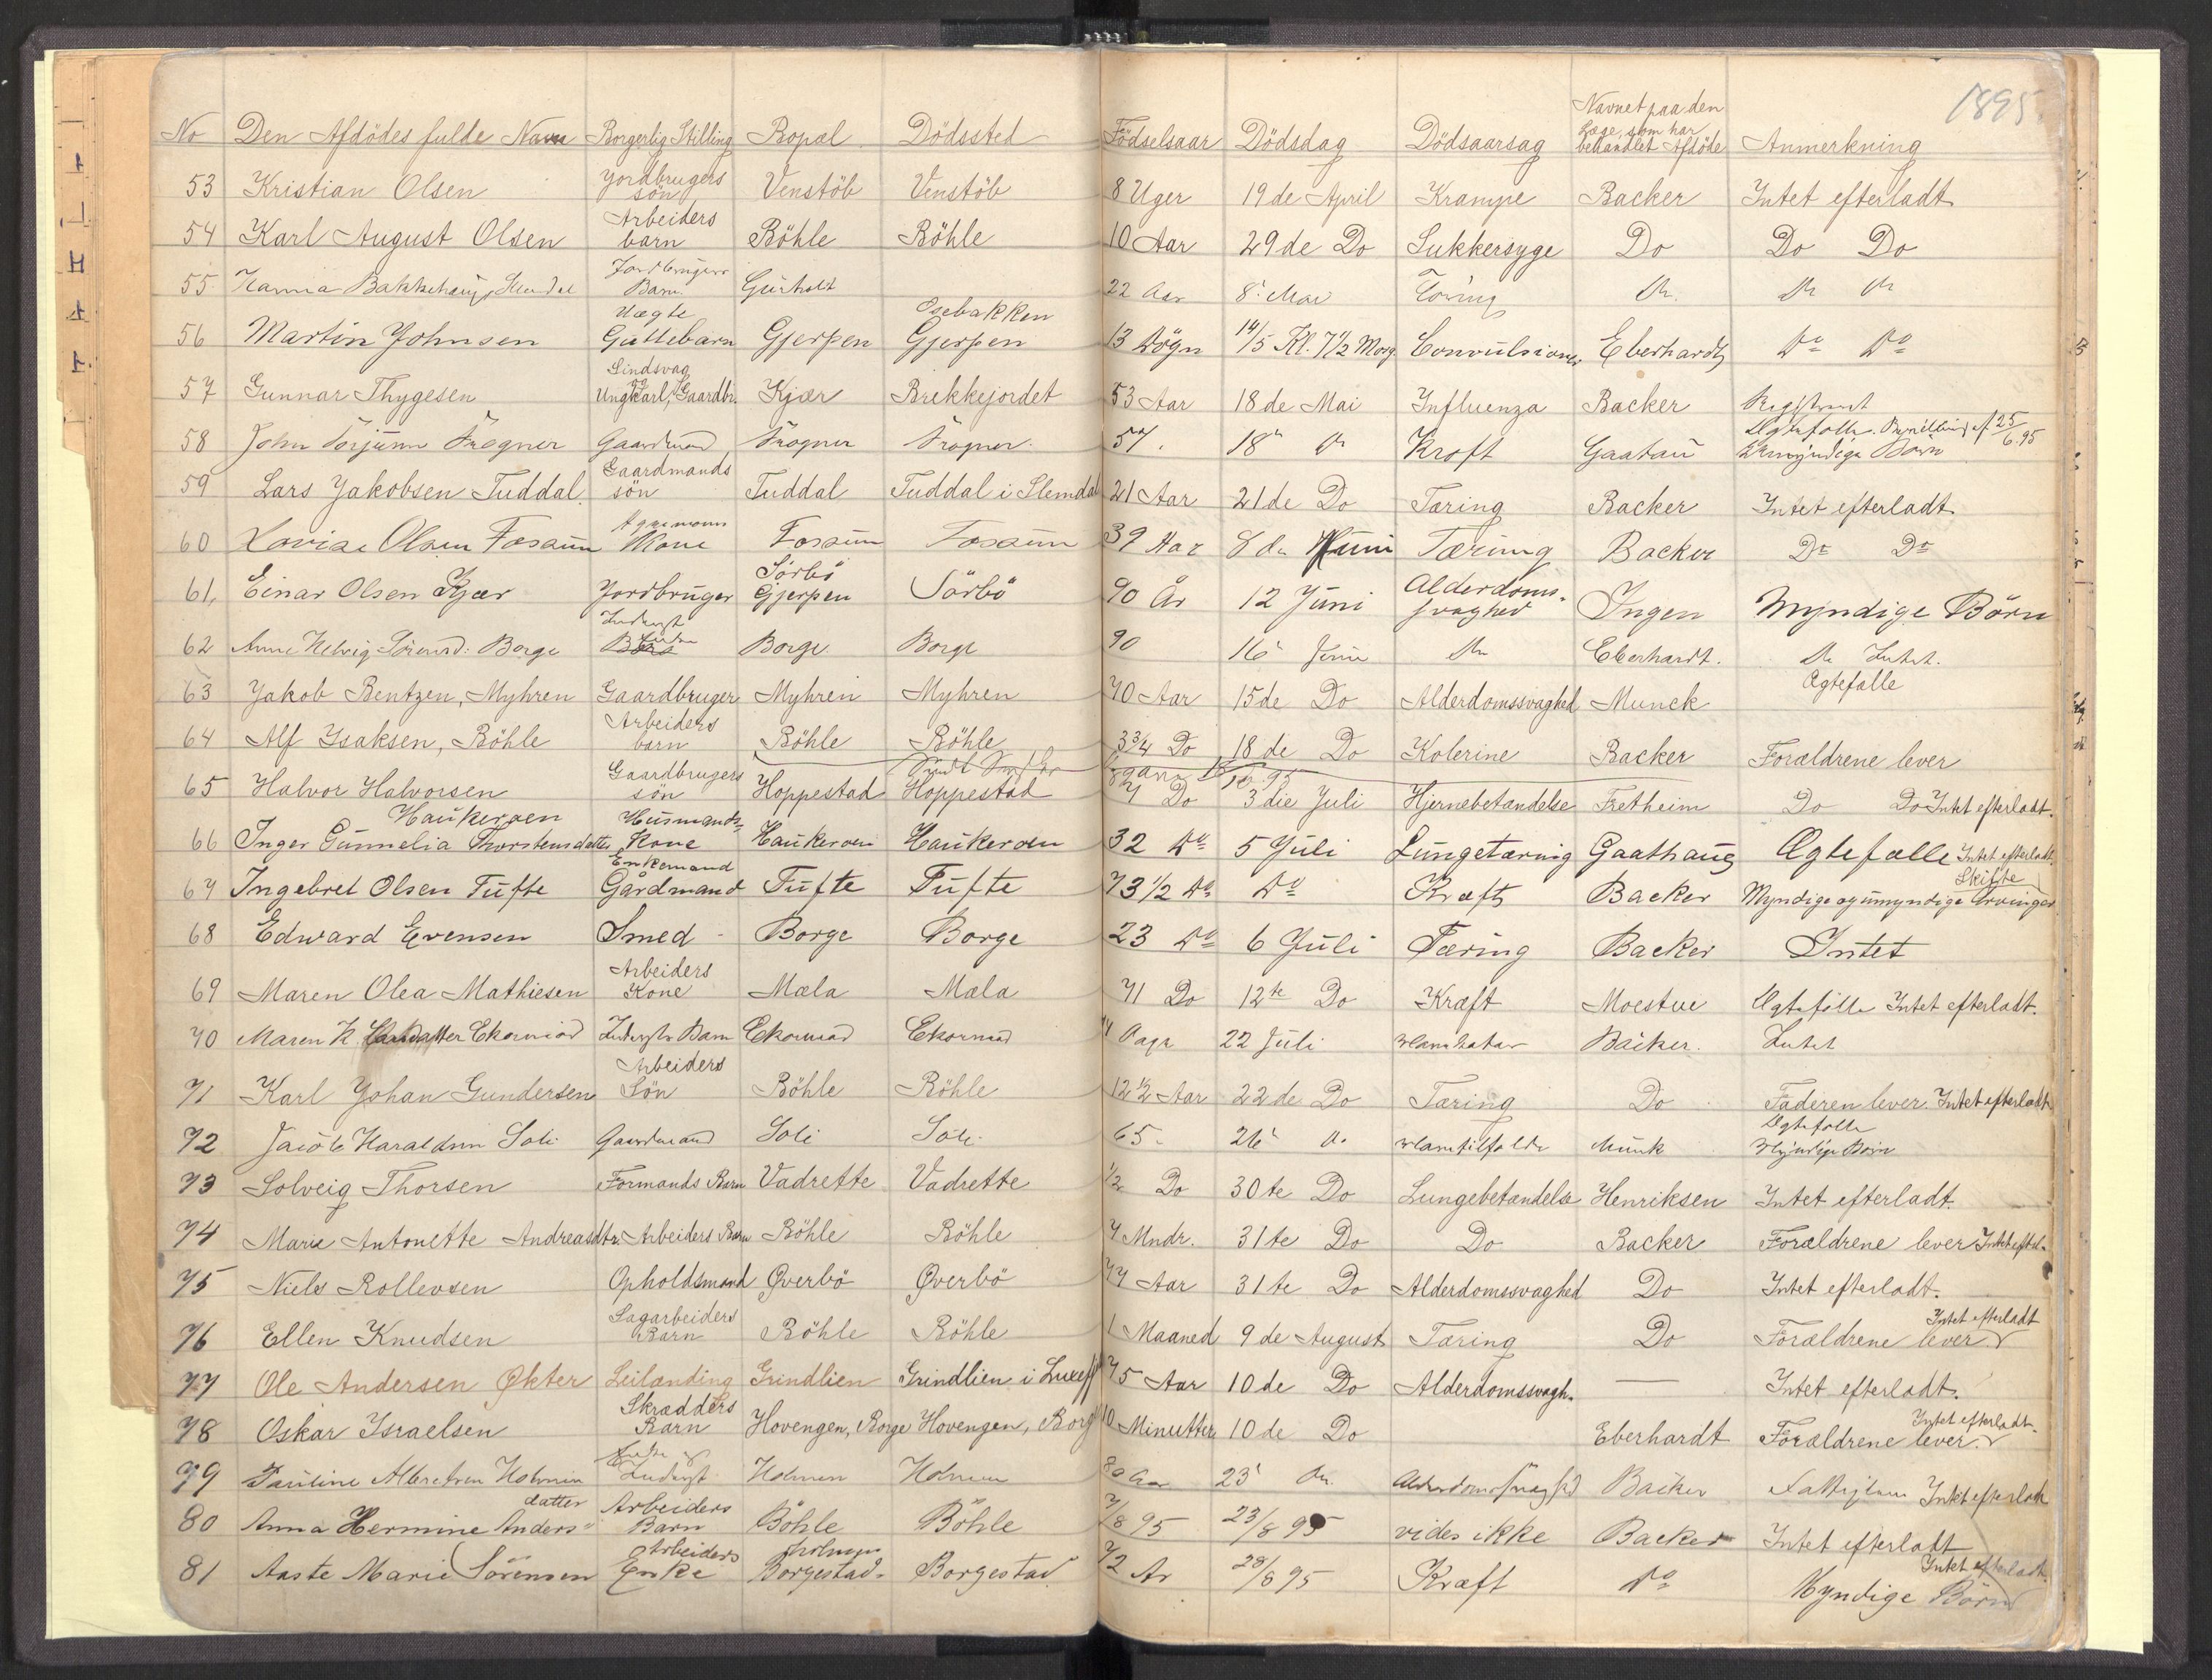 1895.
No Den Afdödes fulde Navn Borgerlig Stilling Bopæl Dödssted Födselsaar Dödsdag Dödsaarsag Navnet paa den Læge, som har behandlet Afdöde Anmerkning
53 Kristian Olsen Jordbrugers sön Venstöb Venstöb 8 Uger 19de April Krampe Backer Intet efterladt
54 Karl August Olsen Arbeiders barn Böhle Böhle 10 Aar 29de Do Sukkersyge Do Do Do
55 Jordbrugers Barn 22 Aar 8' Mai Tæring
56 Martin Johnsen Uægte Guttebarn Gjerpen Osebakken Gjerpen 13 Dögn 14/5 Kl. 7 1/2 Morg. Convulsioner Eberhardt Do Do
57 Gunnar Thygesen Sindsvag Ungkarl, Gaardbr. Kjær Brekkejordet 53 Aar 18de Mai Influenza Backer Registreret
58 John Torjusen Frogner Gaardmand Frogner Frogner. 57. 18' Kræft Ægtefolle. 25/6.95 Umyndige Börn
59 Lars Jakobsen Tuddal Gaardmands sön Tuddal Tuddal i Slemdal 21 Aar 21de Do Tæring Backer Intet efterladt.
60 Lovise Olsen Fossum Kone Fossum Fossum 39 Aar 8de Juni Tæring Backer Do Do
61, Einar Olsen Kjær Jordbruger Sörbö Gjerpen Sörbö 90 År 12 Juni Alderdoms-svaghed Ingen Myndige Börn
62 Anne Helvig Sörensd: Borge Inderst Borge. Borge 90 16' Juni Eberhardt. Intet.
63 Jakob Bentzen, Myhren Gaardbruger Myhren Myhren 70 Aar 15de Do Alderdomssvaghed Munck Ægtefælle
64 Alf Isaksen, Böhle Arbeiders barn Böhle Böhle 3 3/4 Do 18de Do Kolerine Backer Forældrene lever
65 Halvor Halvorsen Gaardbrugers sön Hoppestad Hoppestad 7 Do 3die Juli Hjernebetændelse Fretheim Do Do Intet efterladt.
66 Inger Gunnelia Thorstensdatter Haukeroen Husmands-Kone Haukeroen Haukeroen 32 Do 5 Juli Lungetæring Gaathaug Ægtefælle Intet efterladt.
67 Ingebret Olsen Tufte Enkemand Gårdmand Tufte Tufte 73 1/2 Do Do Kræft Backer Skifte Myndige og umyndige Arvinger
68 Edward Evensen Smed Borge Borge 23 Do 6 Juli Tæring Backer Intet
69 Maren Olea Mathiesen Arbeiders Kone Mæla Mæla 71 Do 12te Do Kræft Moestue Ægtefælle Intet efterladt.
70 Maren K. Larsdatter Ekornrød Inderste Barn Ekornrød Ekornrød 22 Juli Backer. Intet
71 Karl Johan Gundersen Arbeiders Sön Böhle Böhle 12 1/2 Aar 22de Do Tæring Do Faderen lever. Intet efterladt
72 Jacob Haraldsen Soli Gaardmand Soli Soli 65. 26' Munk Ægtefolle Myndige Börn
73 Solveig Thorsen Formands Barn Vadrette Vadrette 1/2 Do 30te Do Lungebetændelse Henriksen Intet efterladt.
74 Marie Antonette Andreasdtr. Arbeiders Barn Böhle Böhle 7 Mndr. 31te Do Do Backer Forældrene lever Intet eftl.
75 Niels Rollevsen Opholdsmand Øverbö Øverbö 77 Aar 31te Do Alderdomssvaghed Do Intet efterladt.
76 Ellen Knudsen Sagarbeiders Barn Böhle Böhle 1 Maaned 9de August Tæring Do Forældrene lever. Intet efterladt
77 Ole Andersen Økter Leilænding Grindlien Grindlien i Luxeff 75 Aar 10de Do Alderdomssvagh. — Intet efterladt.
78 Oskar Israelsen Skrædders Barn Hovengen, Borge Hovengen, Borge 10 Minutter 10de Do Eberhardt Forældrene lever. Intet efterladt.
79 Pauline Albretsen Holmen Enke Inderst Holmen Holmen 80 Aar 23' Alderdomssvaghed Backer Intet efterladt
80 Anna Hermine Anders" datter Arbeiders Barn Böhle Böhle 7/8 95 23/8 95 vides ikke Backer Intet efterladt
81 Aaste Marie Sörensen Arbeiders Enke Borgestad Borgestad 72 Ar 28/8 95 Kræft Do Intet efterladt. Myndige Börn